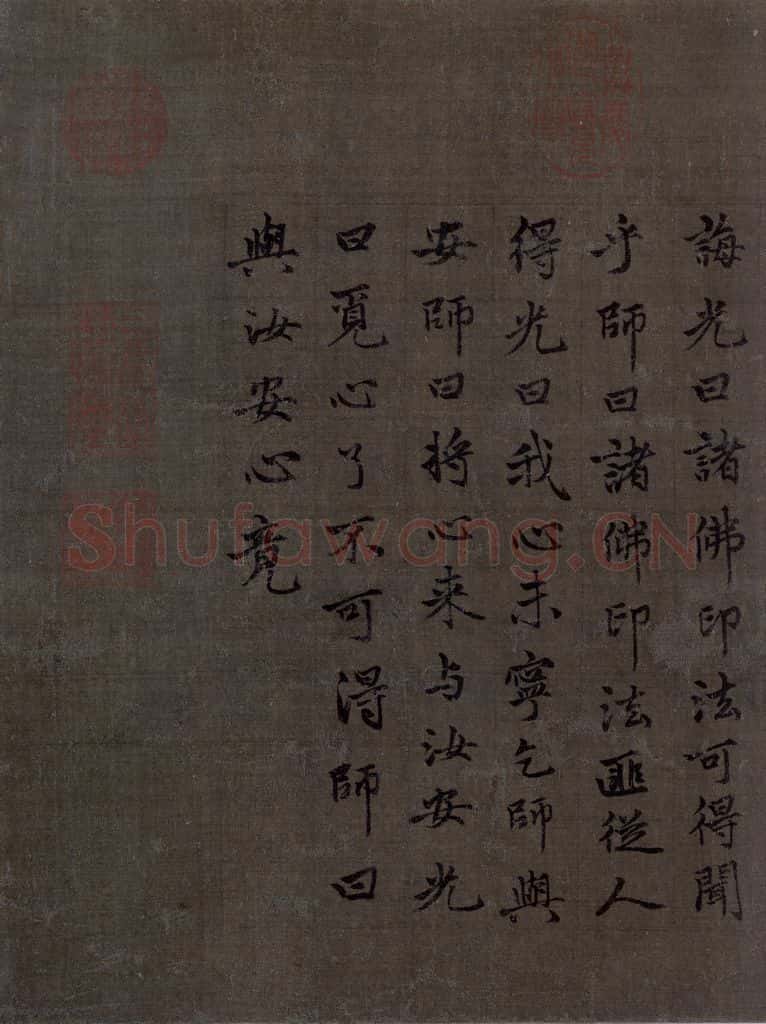 誨光曰諸佛印法可得聞
乎師曰諸佛印法匪從人
得光曰我心未寧乞師與
安師曰將心来与汝安光
曰覓心了不可得師曰
與汝安心竟
Shufawang.CN